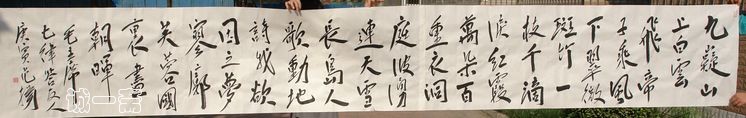 九嶷山
上白雲
飛帝
子乘風
下翠微
斑竹一
枝千滴
淚紅霞
萬朵百
重衣洞
庭波湧
連天雪
長島人
歌動地
詩我欲
因之夢
寥廓
芙蓉國
裏盡
朝暉
毛主席
七律答友人
庚寅
誠一齋